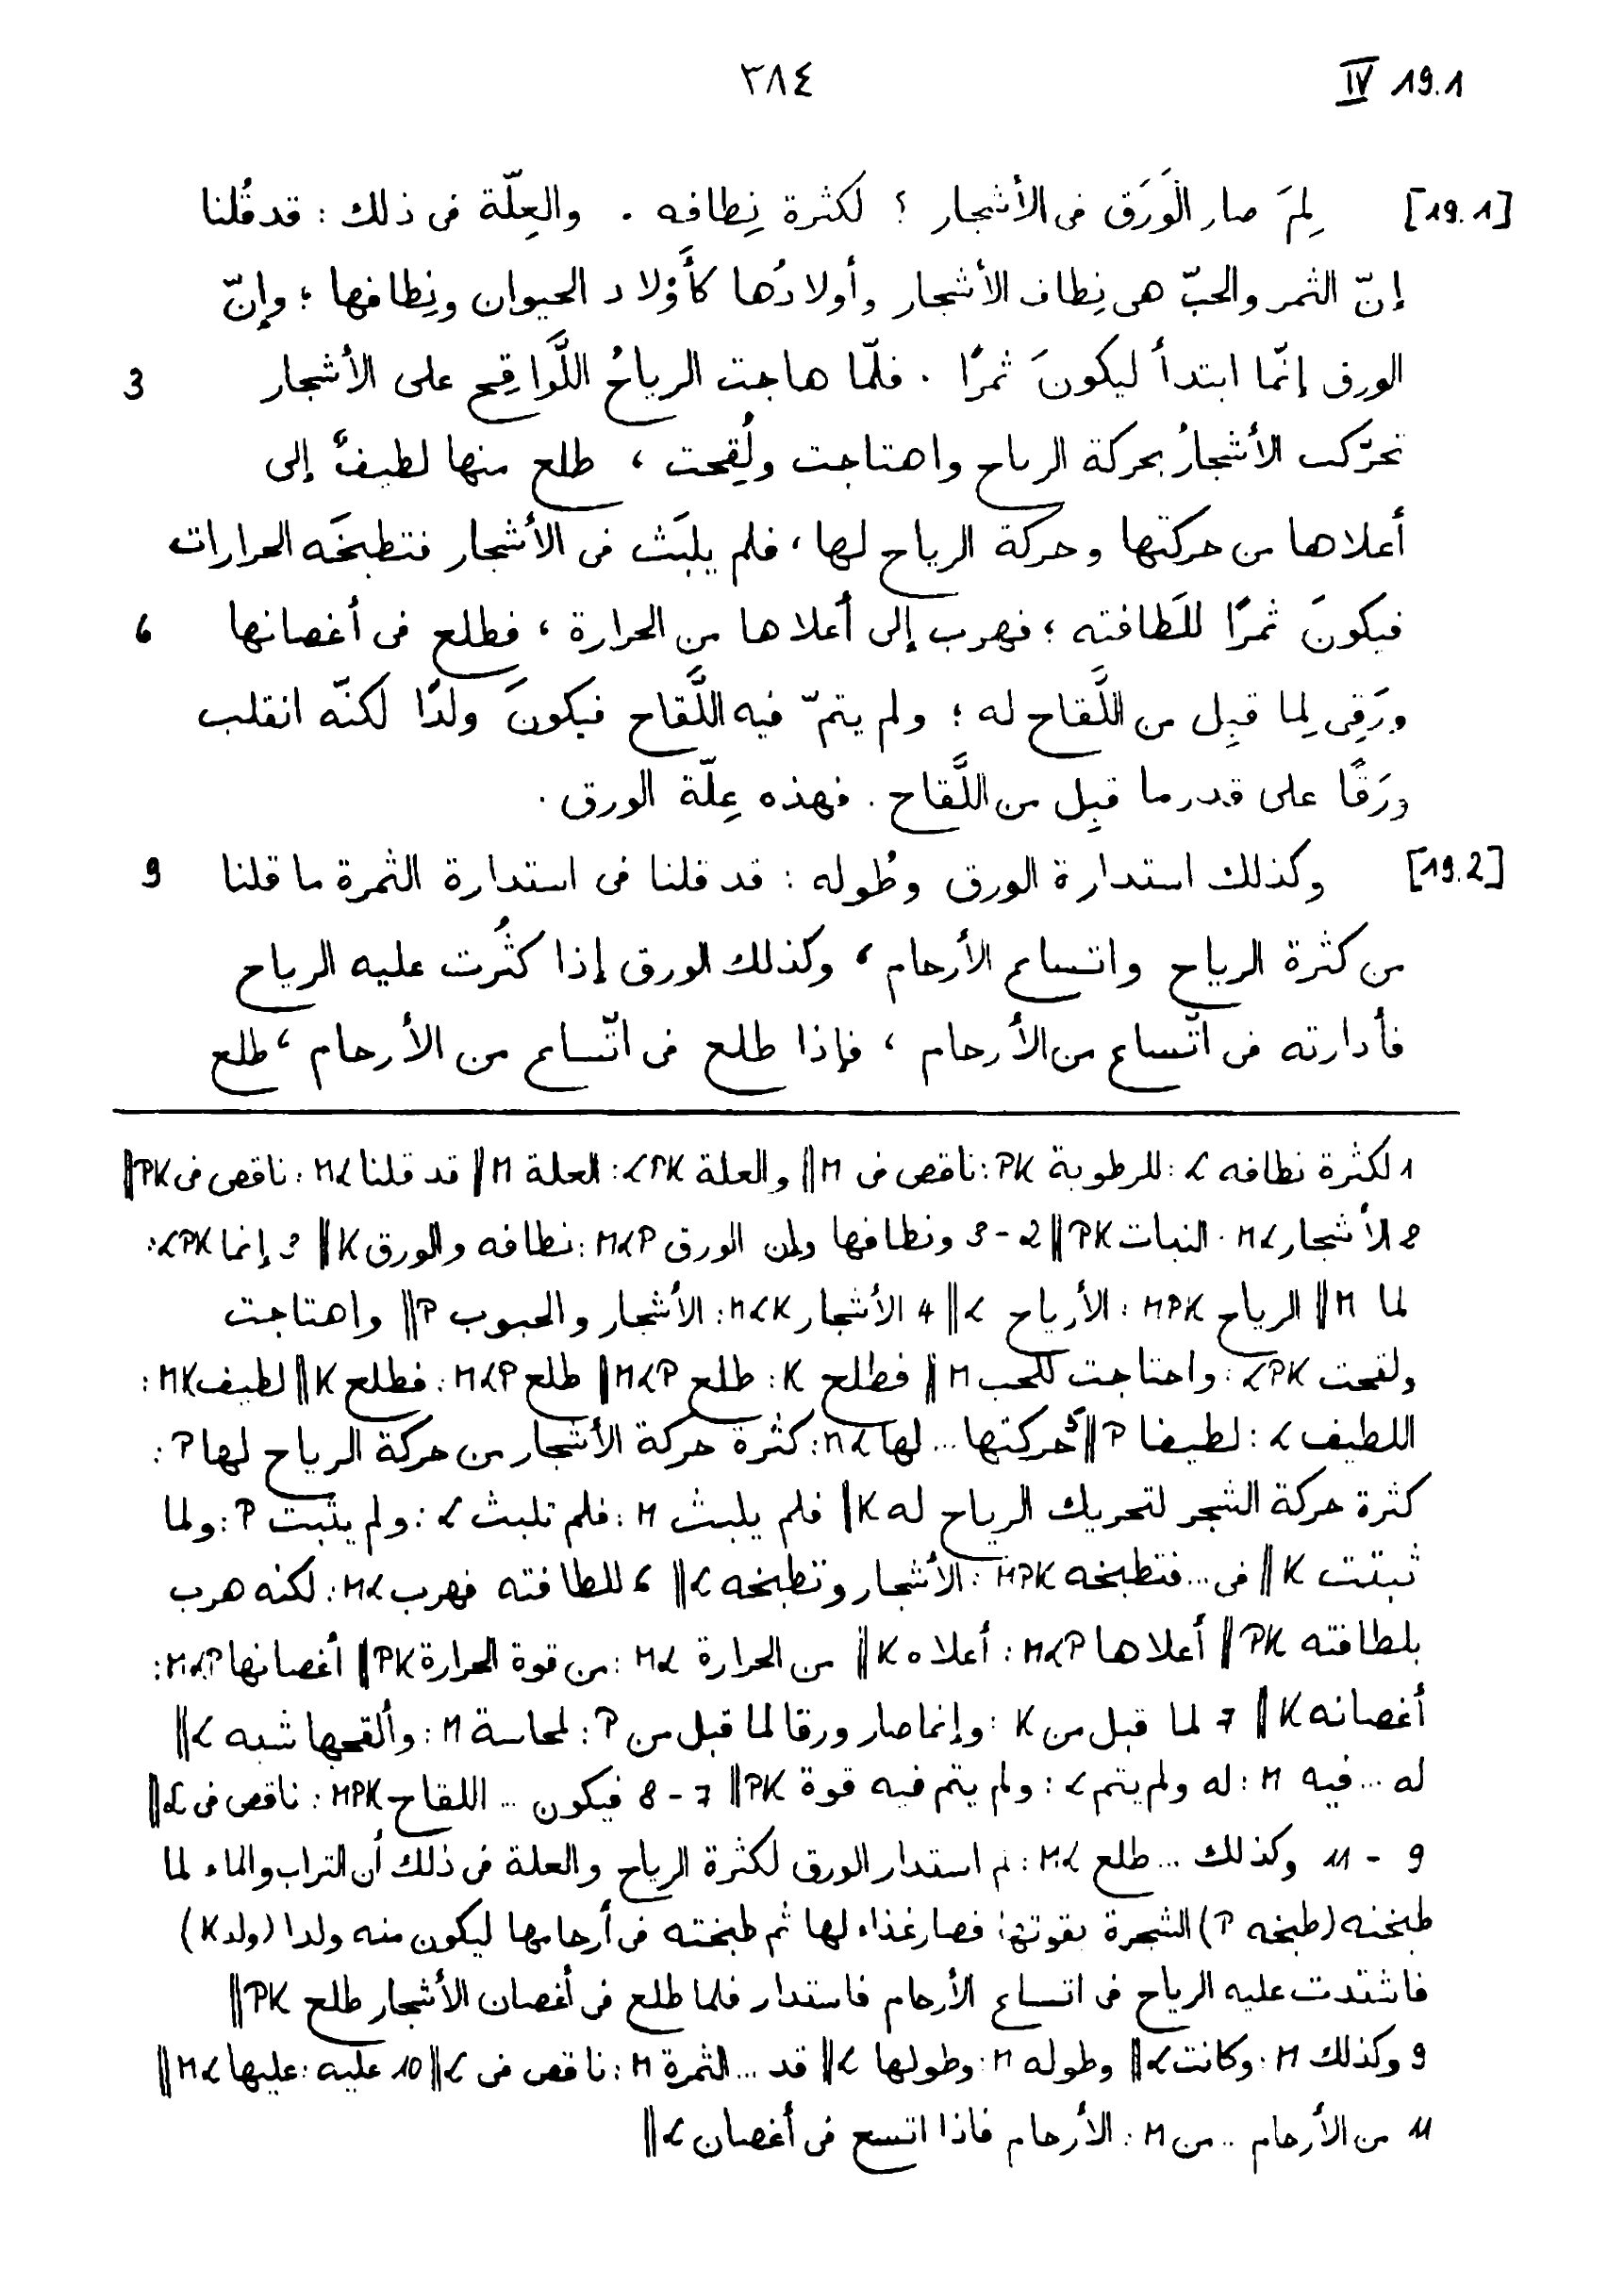 ٣٨٤ IV 19.1
[19.1] لِمَ صار الوَرَق فى الأشجار ؟ لكثرة نِطافه . والعِلّة فى ذلك : قد قُلنا
إنّ الثمر والحبّ هى نِطاف الأشجار وأولادُها كأَوْلاد الحيوان ونِطافها ؛ وإنّ
3 الورق إنّما ابتدأ ليكونَ ثمرًا . فلمّا هاجت الرياحُ اللَّواقِح على الأشجار
تحرّكت الأشجارُ بحركة الرياح واهتاجت ولُقِحت ، طلع منها لطيفٌ إلى
أعلاها من حركتها وحركة الرياح لها ، فلم يلبَث فى الأشجار فتطبخَه الحرارات
6 فيكونَ ثمرًا للَطافته ؛ فهرب إلى أعلاها من الحرارة ، فطلع فى أغصانها
ورَقِى لِما قبِل من اللَّقاح له ؛ ولم يتمّ فيه اللَّقاح فيكونَ ولدًا لكنّه انقلب
ورَقًا على قدر ما قبِل من اللَّقاح . فهذه عِلّة الورق .
[19.2] وكذلك استدارة الورق وطُوله : قد قلنا فى استدارة الثمرة ما قلنا 9
من كثرة الرياح واتساع الأرحام ، وكذلك الورق إذا كثُرت عليه الرياح
فأدارته فى اتّساع من الأرحام ، فإذا طلع فى اتّساع من الأرحام ، طلع
1 لكثرة نطافه L : للرطوبة PK : ناقص فى M || والعلة LPK : العلة M || قد قلنا ML : ناقص فى PK ||
2 الأشجار ML : النبات PK || 2 - 3 ونطافها وإن الورق MLP : نطافه والورق K || 3 إنما LPK :
لما M || الرياح MPK : الأرياح L || 4 الأشجار MLK : الأشجار والحبوب P || واهتاجت
ولقحت LPK : واحتاجت للحب M || فطلع K : طلع MLP || طلع MLP : فطلع K || لطيف MK :
اللطيف L : لطيفا P || 5 حركتها ... لها ML : كثرة حركة الأشجار من حركة الرياح لها P :
كثرة حركة الشجر لتحريك الرياح له K || فلم يلبث M : فلم تلبث L : ولم يثبت P : ولما
ثبتت K || فى ... فتطبخه MPK : الأشجار وتطبخه L || 6 للطافته فهرب ML : لكنه هرب
بلطافته PK || أعلاها MLP : أعلاه K || من الحرارة ML : من قوة الحرارة PK || أغصانها MLP :
أغصانه K || 7 لما قبل من K : وإنما صار ورقا لما قبل من P : لمحاسة M : وألقحها شبه L ||
له ... فيه M : له ولم يتم L : ولم يتم فيه قوة PK || 7 - 8 فيكون ... اللقاح MPK : ناقص فى L ||
9 - 11 وكذلك ... طلع ML : لم استدار الورق لكثرة الرياح والعلة فى ذلك أن التراب والماء لما
طبخته (طبخه P) الشجرة بقوتها فصار غذاء لها ثم طبخته فى أرحامها ليكون منه ولدا (ولد K)
فاشتدت عليه الرياح فى اتساع الأرحام فاستدار فلما طلع فى أغصان الأشجار طلع PK ||
9 وكذلك M : وكانت L || وطوله M : وطولها L || قد ... الثمرة M : ناقص فى L || 10 عليه : عليها ML ||
11 من الأرحام .. من M : الأرحام فاذا اتسع فى أغصان L ||